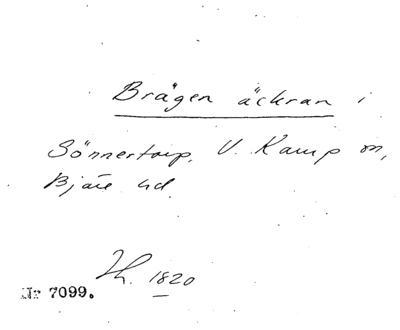 Brågen äckran i
Sönnertorp, V. Karup sn,
Bjäre hd
Th. 1820
Nr 7099.